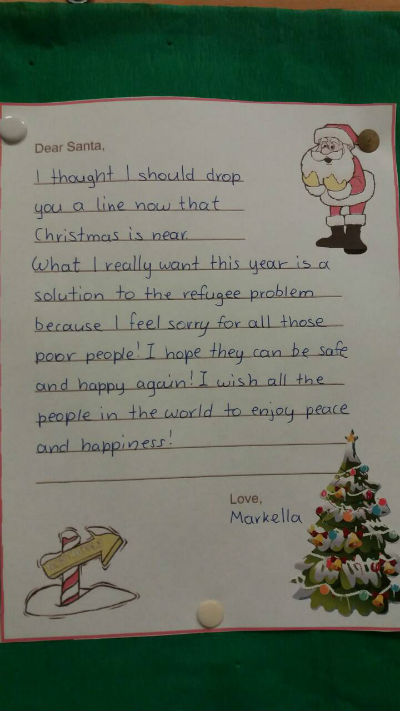 Dear Santa,
I thought I should drop
you a line now that
Christmas is near.
What I really want this year is a
solution to the refugee problem
because I feel sorry for all those
poor people! I hope they can be safe
and happy again! I wish all the
people in the world to enjoy peace
and happiness!
Love,
Markella